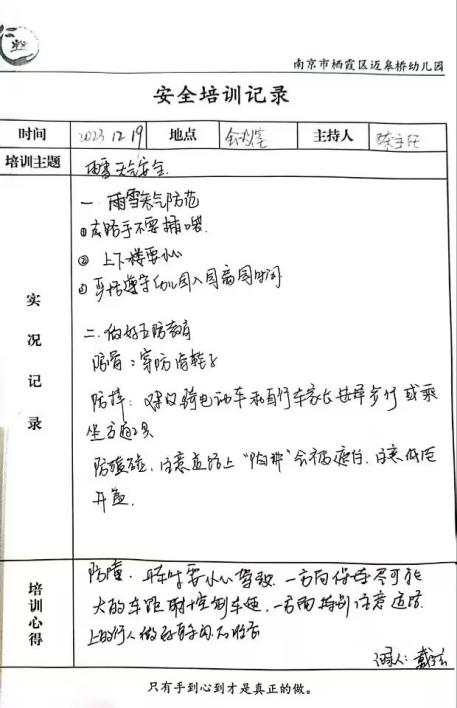 南京市栖霞区迈皋桥幼儿园
安全培训记录
时间 2023 12 19 地点 会议室 主持人 陈主任
培训主题 雨雪天气安全
实况记录
一 雨雪天气防范
①走路手不要插口袋
② 上下楼要小心
③严格遵守幼儿园入园离园时间
二.做好五防教育
防滑:穿防滑鞋
防摔:建议骑电动车和自行车家长选择步行或乘
坐方通工具
防磕碰,注意道路上“陷井”会被遮白,注意
开车
培训心得
防撞.开车时要小心驾驶.一方面保持尽可能
大的车距 控制车速,一方面特别注意道路
上的行人做好
记录人:
只有手到心到才是真正的做。